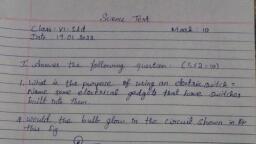 Science Test
Class: VI Std Mark: 10
Date: 19.01.2022
I. Answer the following question: (5x2=10)
1. What is the purpose of using an electric switch?
Name some electrical gadgets that have switches
built into them.
2. Would the bulb glow in the circuit shown in
this fig